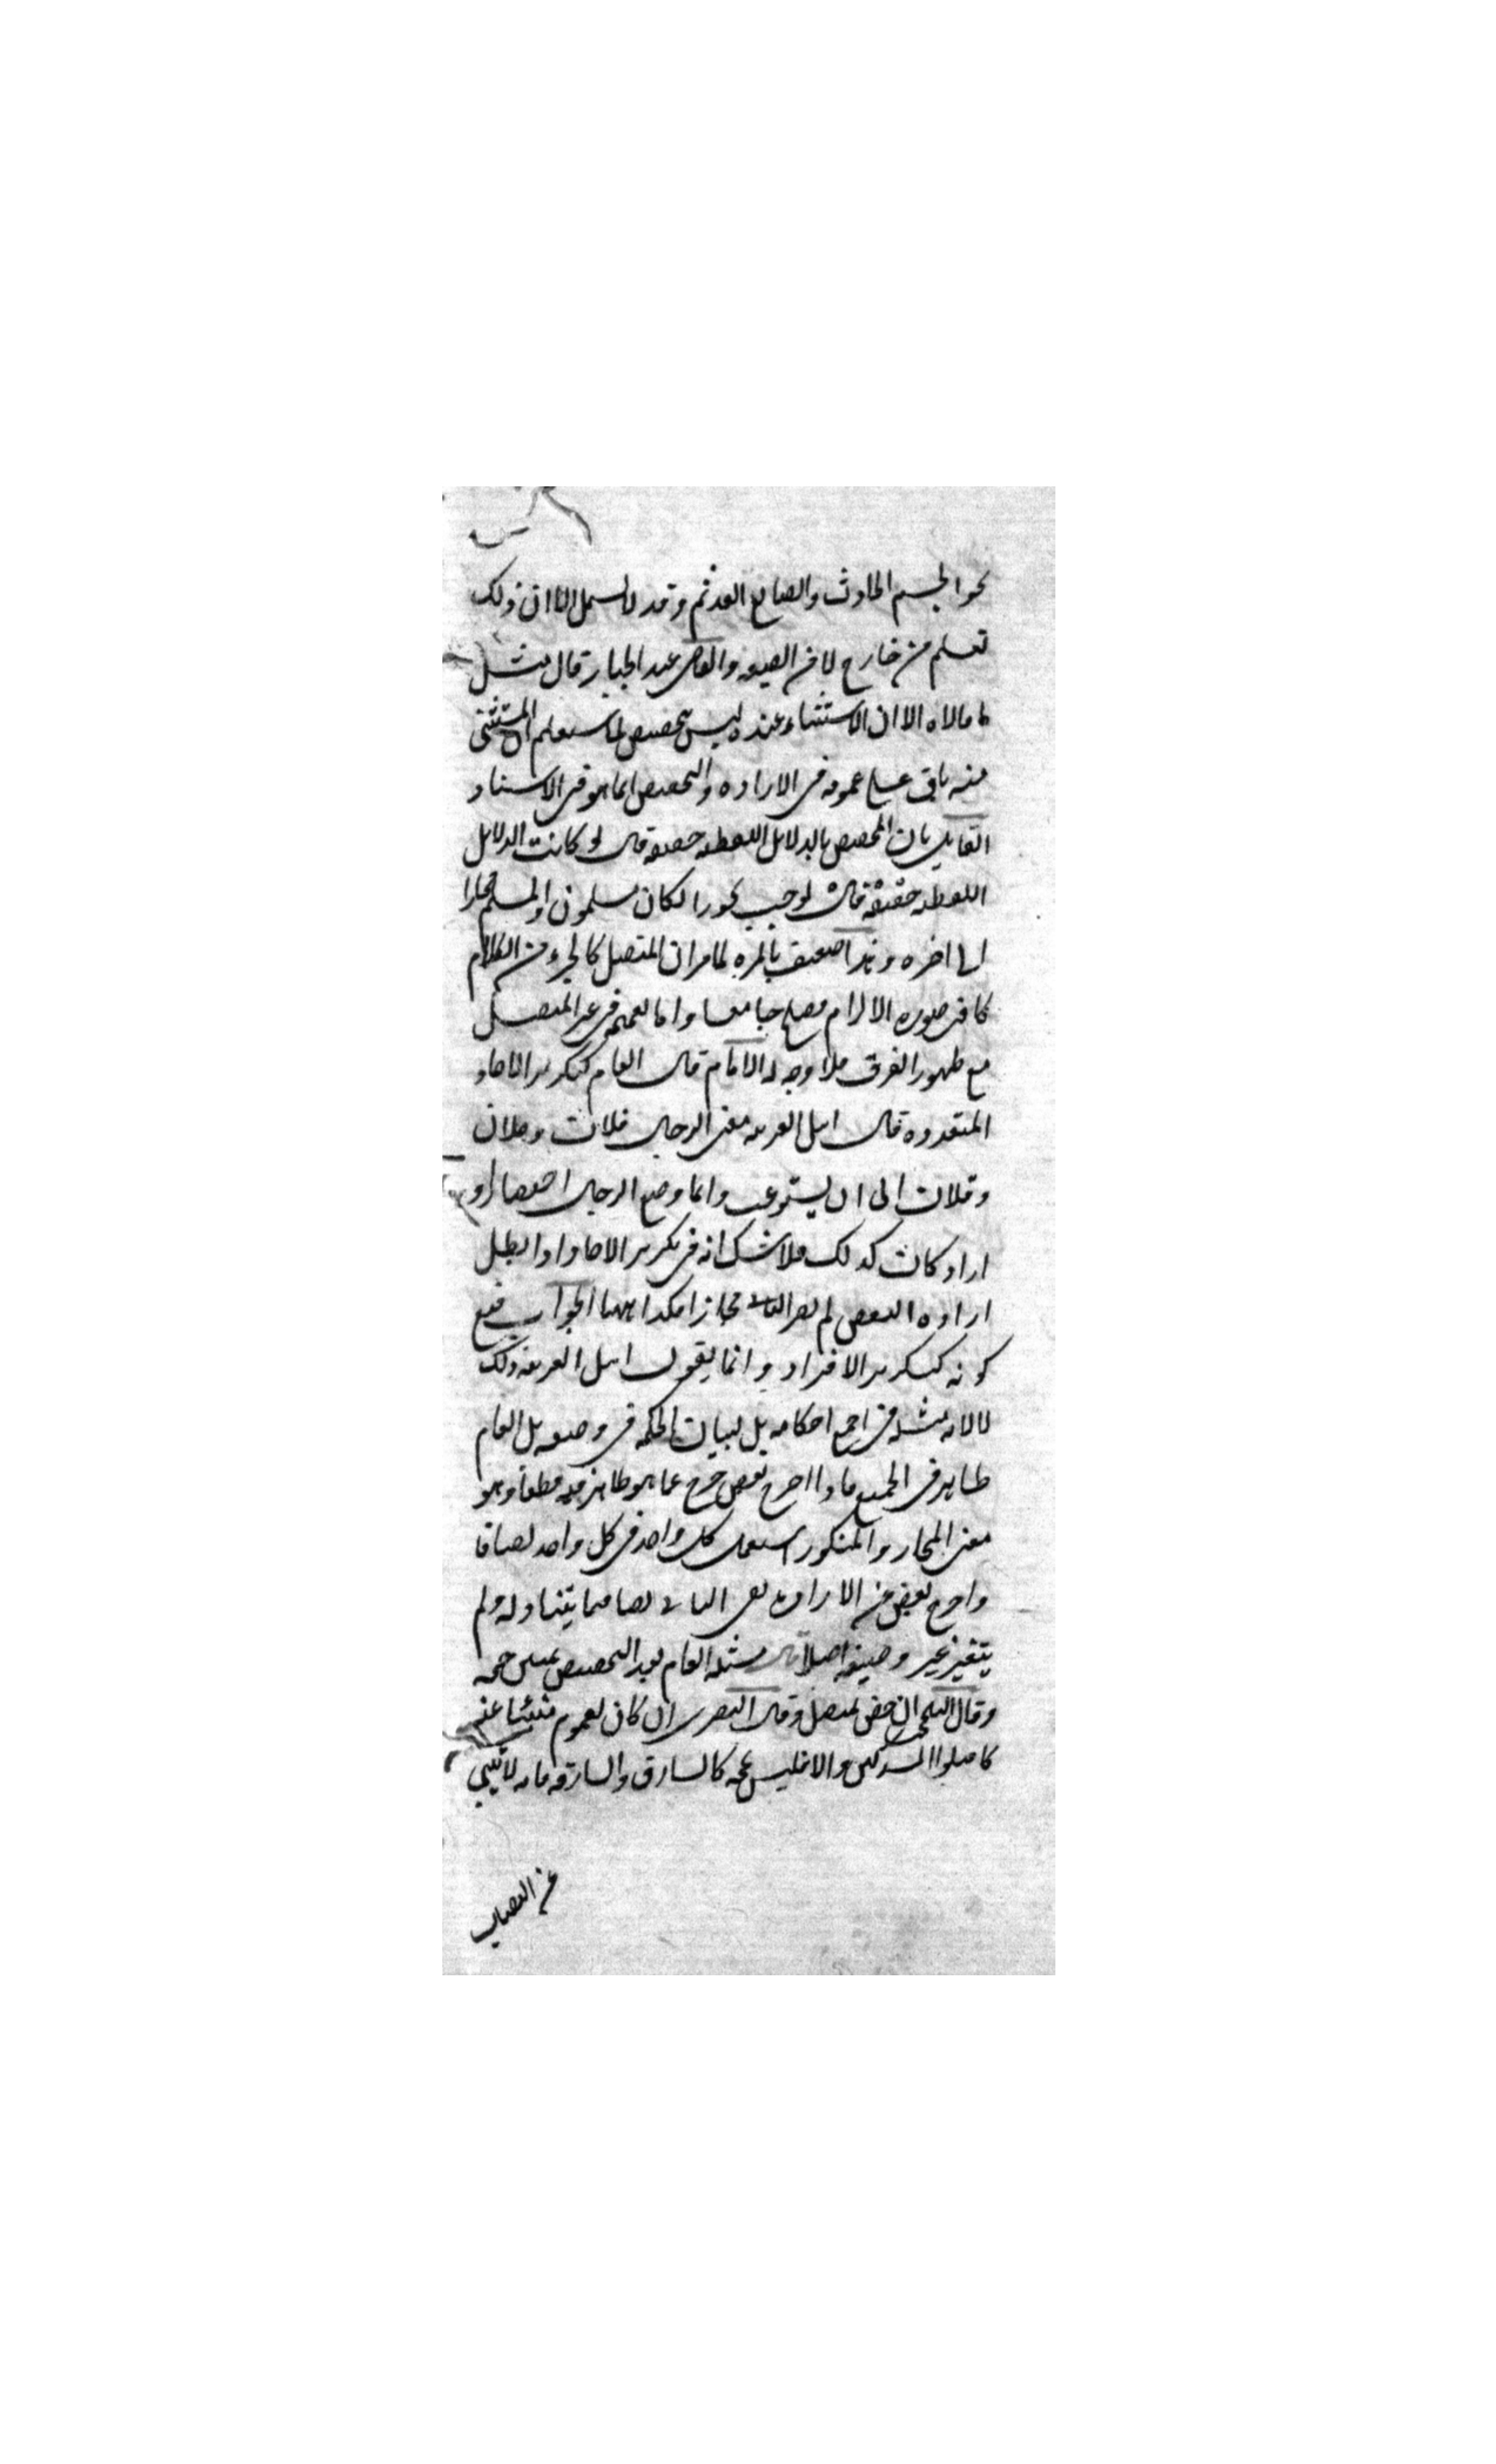 نحو الجسم الحادث والصانع القديم وقد لا يشمل الا ان ذلك
تعلم من خارج لا من الصيغه والقاضى عبد الجبار قال مثل
ما مالاه الا ان الاستثناء عنده ليس بتخصيص لما سيعلم ان المستثنى
منه باق على عمومه فى الاراده والتخصيص انما هو فى الاسناد
القايل بان المخصص بالدلايل اللفظيه حقيقه قال لو كانت الدلايل
اللفظيه حقيقة قال لوجب نحورا لكان مسلمون والمسلم مجازا
الى اخره وهذا اضعف بالمره لما مر ان المتصل كالجزء من الكلام
كما فى صوره الالزام فصلح جامعا واما تعميمه فى غير المتصل
مع ظهور الفرق فلا وجه له الامام قال العام كتكرير الاحاد
المتعدده قال اهل العربيه معنى الرجال فلان وفلان
وفلان الى ان يستوعب وانما وضع الرجال اختصارا و
اراد كان كذلك فلا شك انه فى تكرير الاحاد اذا بطل
اراده البعض لم يصر الباقى مجازا فكذا ههنا الجواب منع
كونه كتكرير الافراد وانما يقول اهل العربيه ذلك
لا لانه مثله فى جميع احكامه بل لبيان الحكمه فى وضعه بل العام
ظاهر فى الجميع فاذا اخرج بعض خرج عما هو ظاهر فيه قطعا وهو
معنى المجاز والمتكرر استعمل كل واحد فى كل واحد نصا فاذا
واخرج بعض عن الاراده بقى الباقى نصا فيما يتناوله ولم
يتغير عن وضعه اصلا قال مسئله العام بعد التخصيص بمبين حجه
وقال البلخى ان خص بمتصل وقال البصرى ان كان العموم منبئا عنه
كاقتلوا المشركين والا فليس بحجه كالسارق والسارقه فانه لا ينبى
عن النصاب